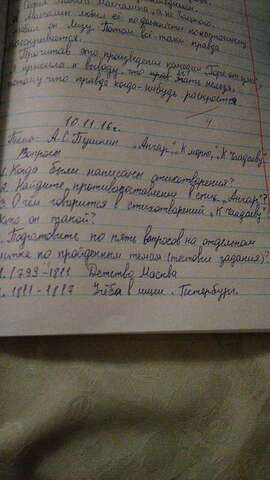 Молчалин любил её
любил он Лизу. Потом всё-таки правда
раскрывается.
Прочитав это произведение комедии "Горе от ума",
я пришла к выводу, что нельзя,
потому что правда когда-нибудь раскроется
4
10.11.16г.
Тема: А.С.Пушкин "Анчар", "К морю", "К Чаадаеву"
Вопросы
1. Когда были написаны стихотворения?
2. Найдите противопоставления в стих. "Анчар"?
3. О чём говорится в стихотворении "К Чаадаеву"
Кто он такой?
Подготовить по пять вопросов на отдельном
листке по пройденным темам (тестовые задания)?
1. 1799-1811 Детство Москва
1811-1817 Учёба в лицее. Петербург.